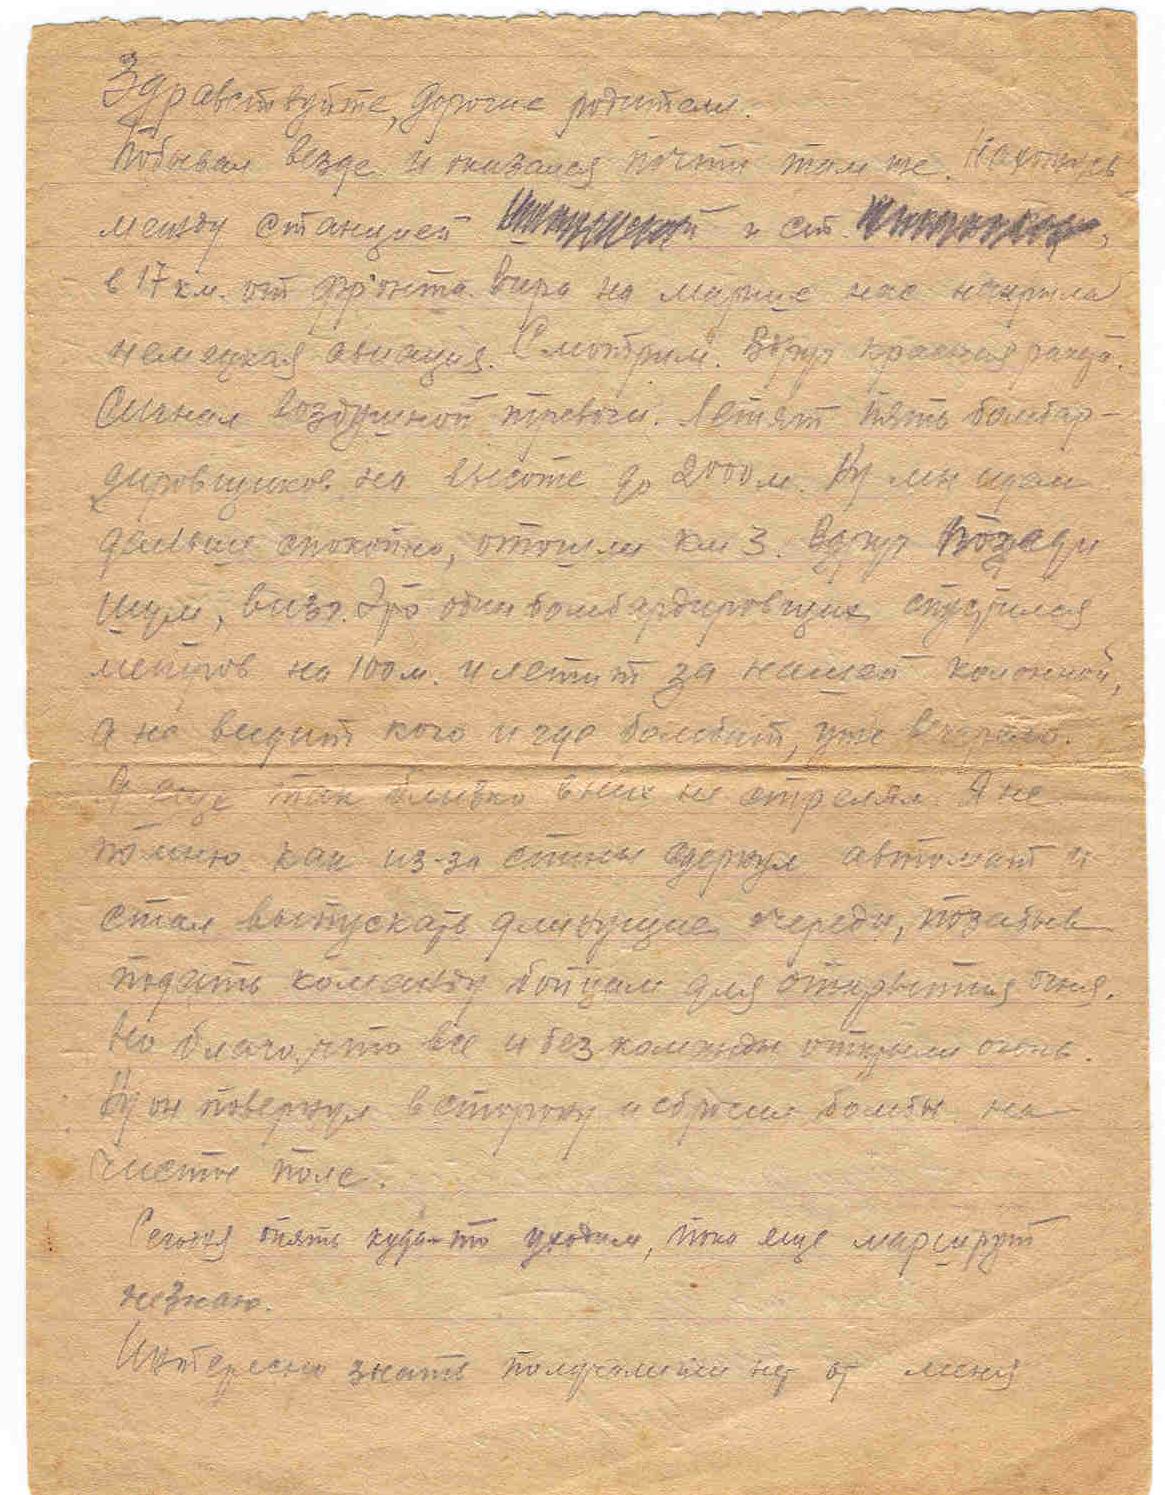 Здравствуйте, дорогие родители.
Побывал везде и оказался почти там же. Нахожусь
между станцией и ст. ,
в 17 км. от фронта. Вчера на марше нас накрыла
немецкая авиация. Смотрим. Вдруг красная ракета.
Сигнал воздушной тревоги. Летят пять бомбар-
дировщиков на высоте до 2000 м. Ну мы идем
дальше спокойно, отошли км 3. Вдруг позади
шум, визг. Это один бомбардировщик спустился
метров на 100 м. и летит за нашей колонной,
а не видит кого и где бомбит, уже вечерело.
Я еще так близко в них не стрелял. Я не
помню как из-за спины сдернул автомат и
стал выпускать длиннущие очереди, позабыв
подать команду бойцам для открытия огня.
Но благо, что все и без команды открыли огонь.
Ну он повернул в сторону и сбросил бомбы на
чистое поле.
Сегодня опять куда-то уходим, пока еще маршрут
не знаю.
Интересно знать получали ли от меня